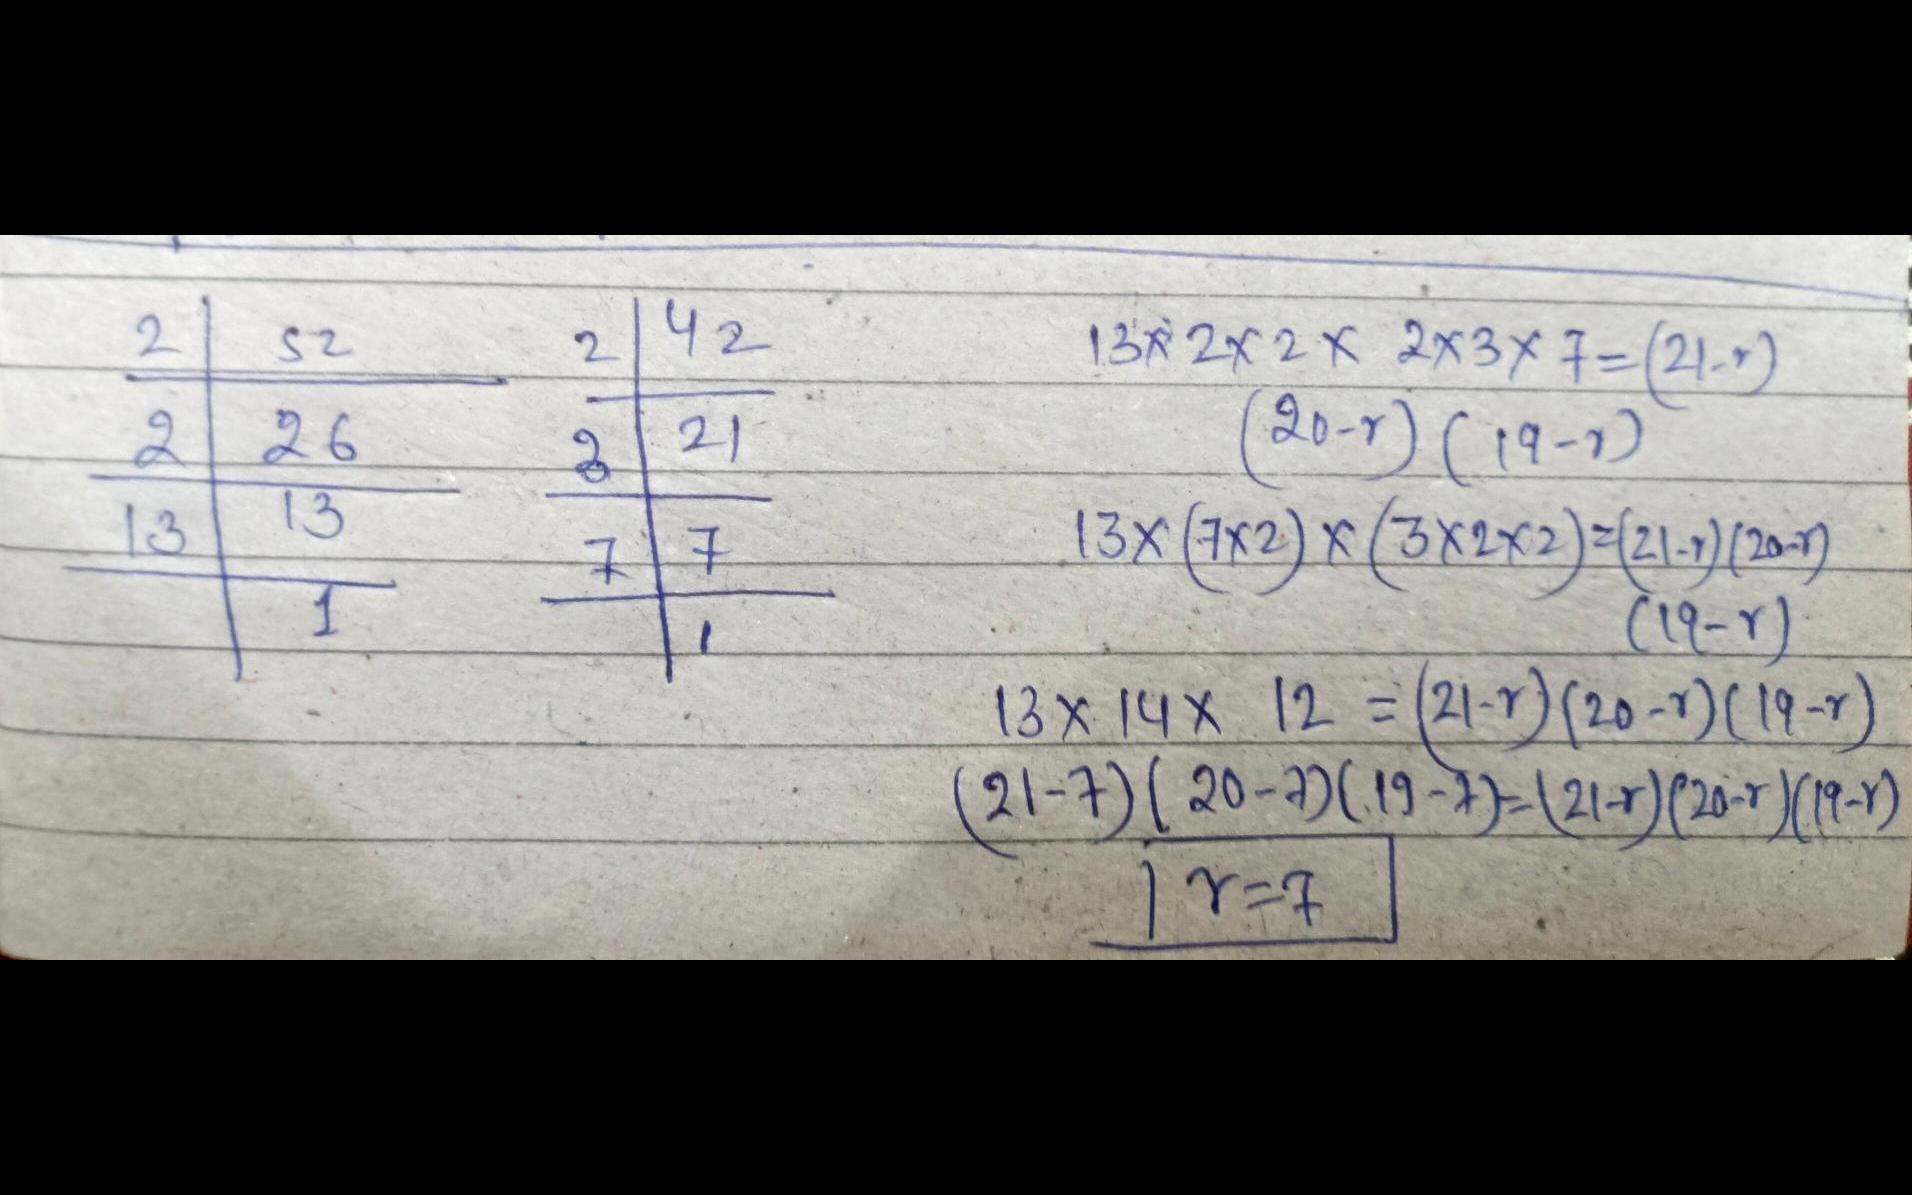 2 | 52
2 | 26
13 | 13
1
2 | 42
3 | 21
7 | 7
1
13 × 2 × 2 × 2×3×7 = (21-r)
(20-r) (19-r)
13 × (7×2) × (3×2×2) = (21-r) (20-r)
(19-r)
13 × 14 × 12 = (21-r) (20-r) (19-r)
(21-7) (20-7) (19-7) = (21-r) (20-r) (19-r)
r=7